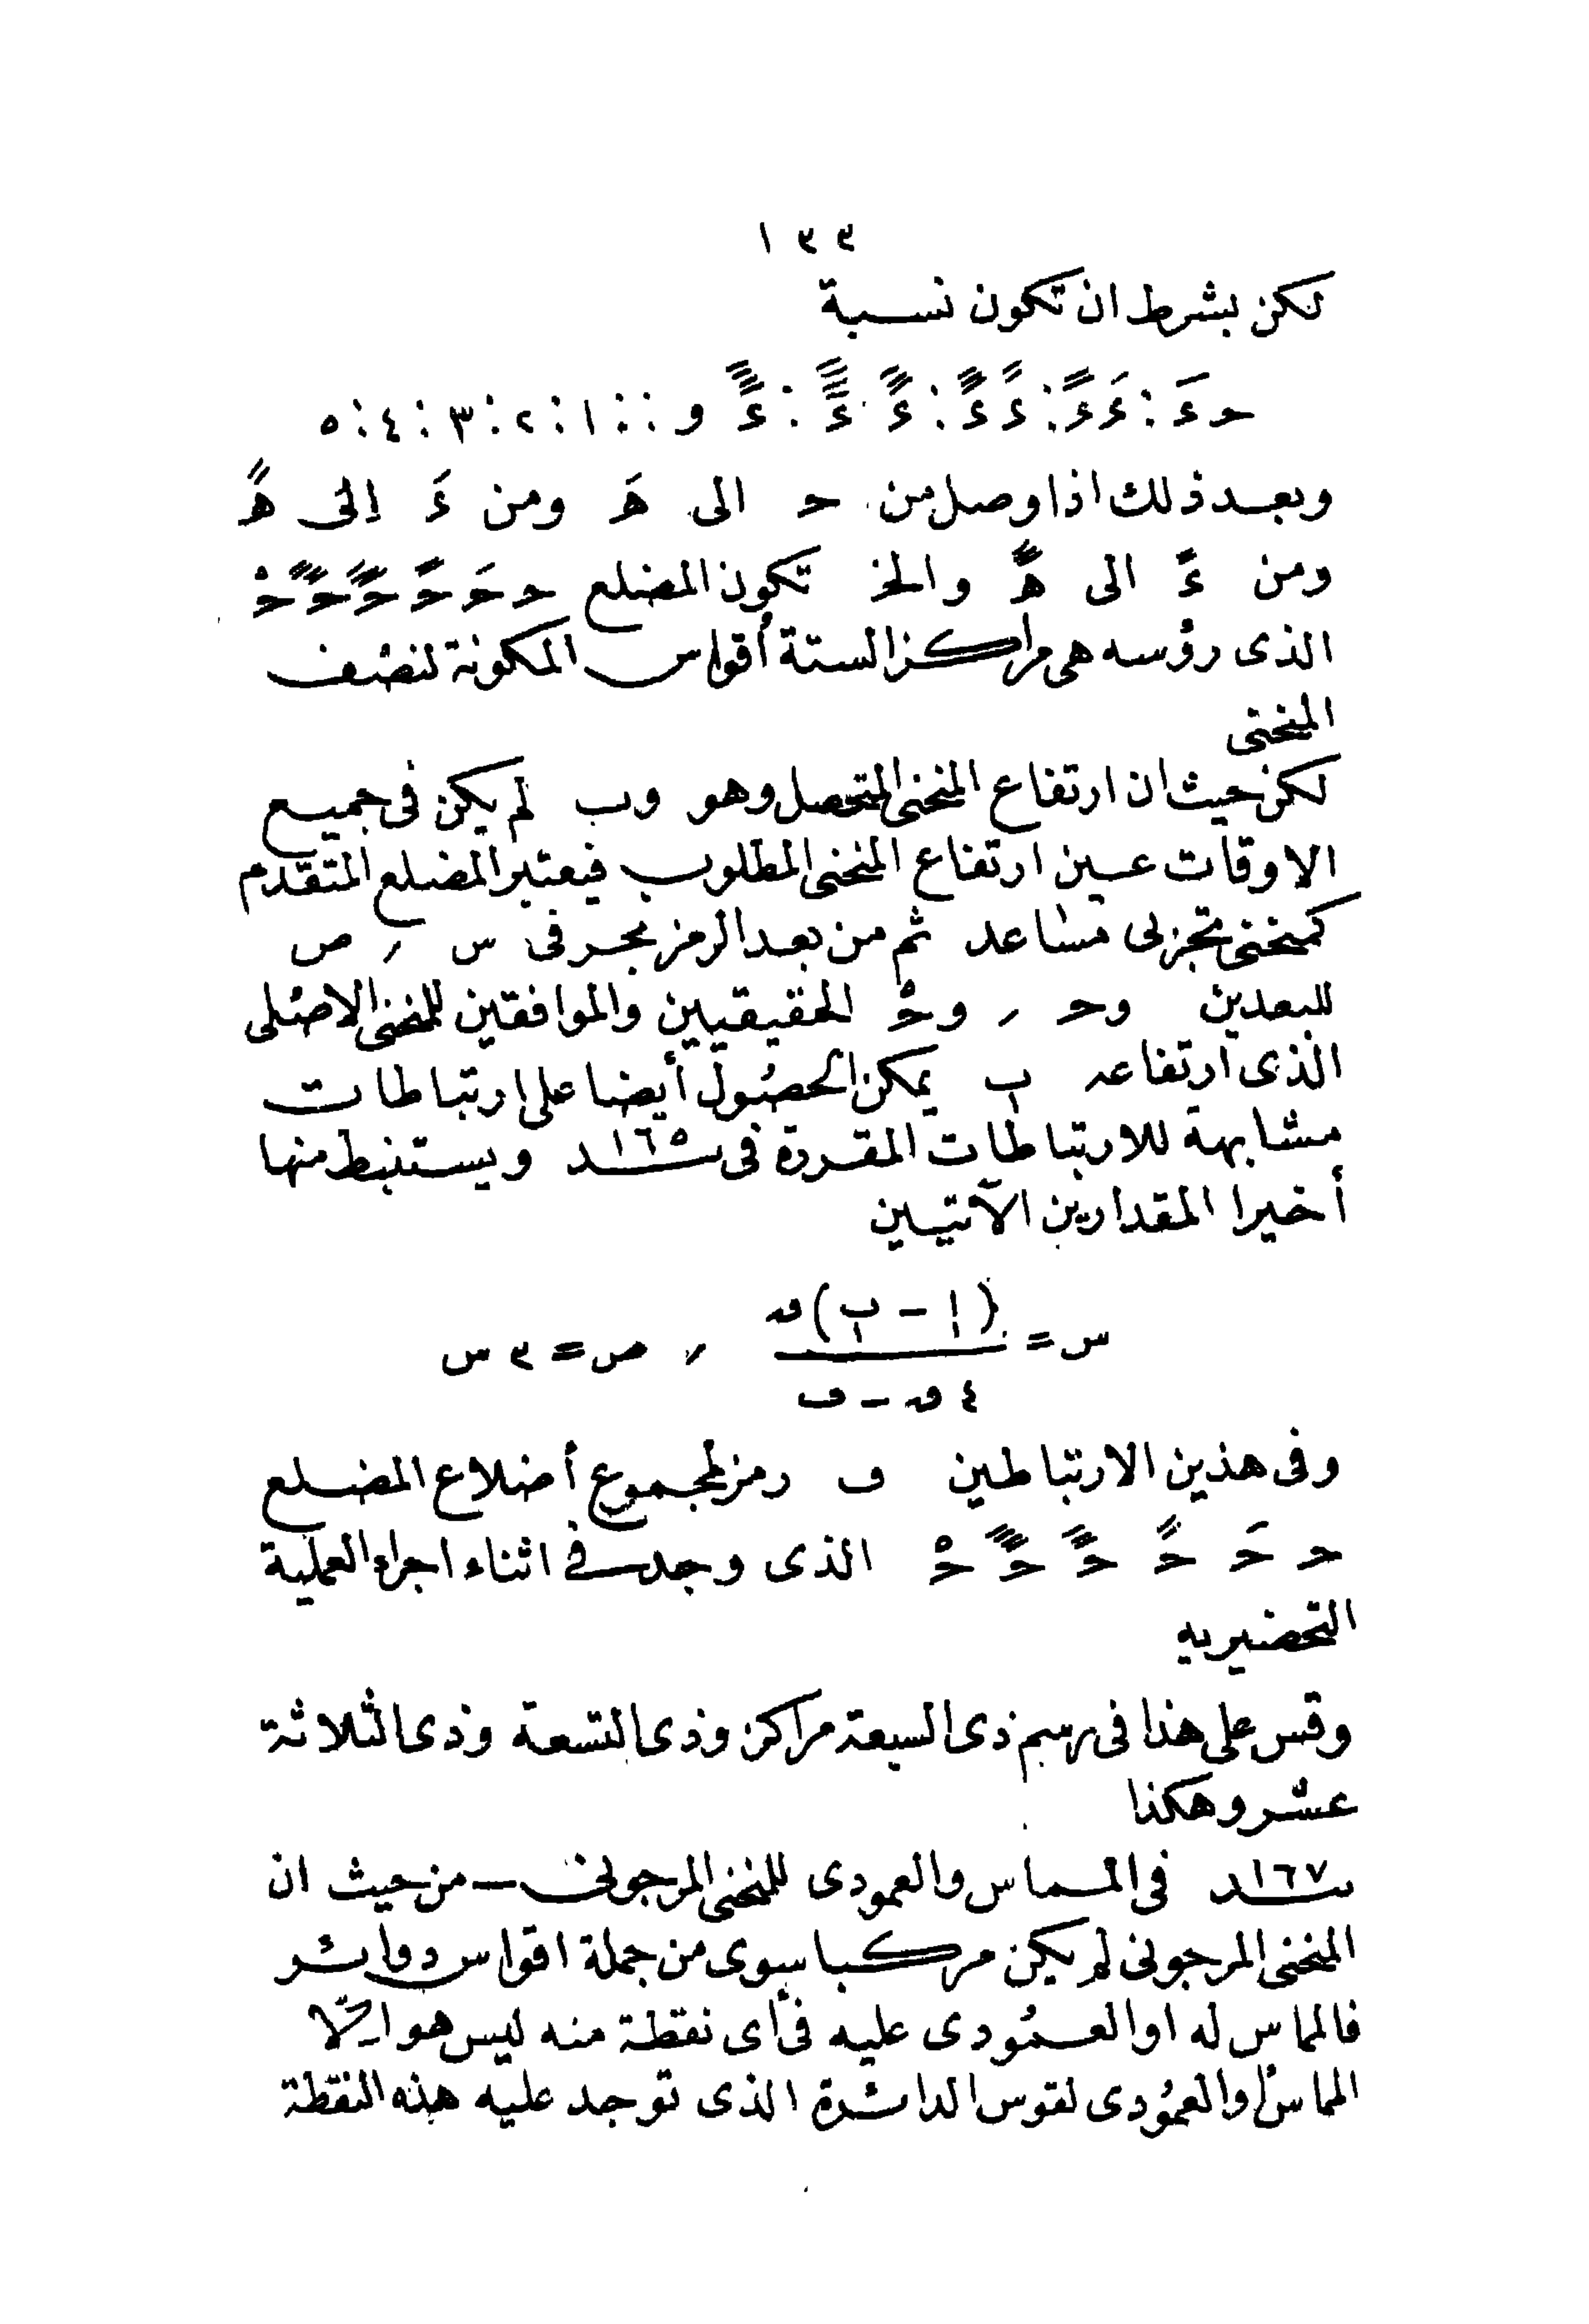 ١٣٣
لكن بشرط ان تكون نسبة
حءَ : ءَءً : ءًء : ء : ء : ءو :: ١ : ٢ : ٣ : ٤ : ٥
وبعد ذلك اذا وصل من ح الى هَ ومن ءَ إلى هً
ومن ءً الى ه والخ تكون المضلع ح حَ حً ح ح حْ
الذى رؤسه هى مراكز الستة أقواس المكونة لنصف
المنحنى
لكن حيث ان ارتفاع المنحنى المتحصل وهو وب لم يكن فى جميع
الاوقات عين ارتفاع المنحنى المطلوب فيعتبر المضلع المتقدم
كمنحنى تجزئى مساعد ثم من بعد الرمز بحرفى س ، ص
للبعدين وح ، وحْ الحقيقيين والموافقين للمنحنى الاصلى
الذى ارتفاعه ب يمكن الحصول أيضا على ارتباطات
مشابهة للارتباطات المقررة فى ١٦٥ سد ويستنبط منها
أخيرا المقدارين الآتيين
س = (ا - ب) ق / ٤ ق - ف ، ص = ٣ س
وفى هذين الارتباطين ف رمز لمجموع أضلاع المضلع
ح حَ حً ح ح حْ الذى وجد فى اثناء اجراء العملية
التحضيريه
وقس على هذا فى رسم ذى السبعة مراكز وذى التسعة وذى الثلاثة
عشر وهكذا
١٦٧ سد فى المماس والعمودى للمنحنى المرجونى — من حيث ان
المنحنى المرجونى لم يكن مركبا سوى من جملة اقواس دوائر
فالمماس له او العمودى عليه فى أى نقطة منه ليس هو الّا
المماس او العمودى لقوس الدائرة الذى توجد عليه هذه النقطة